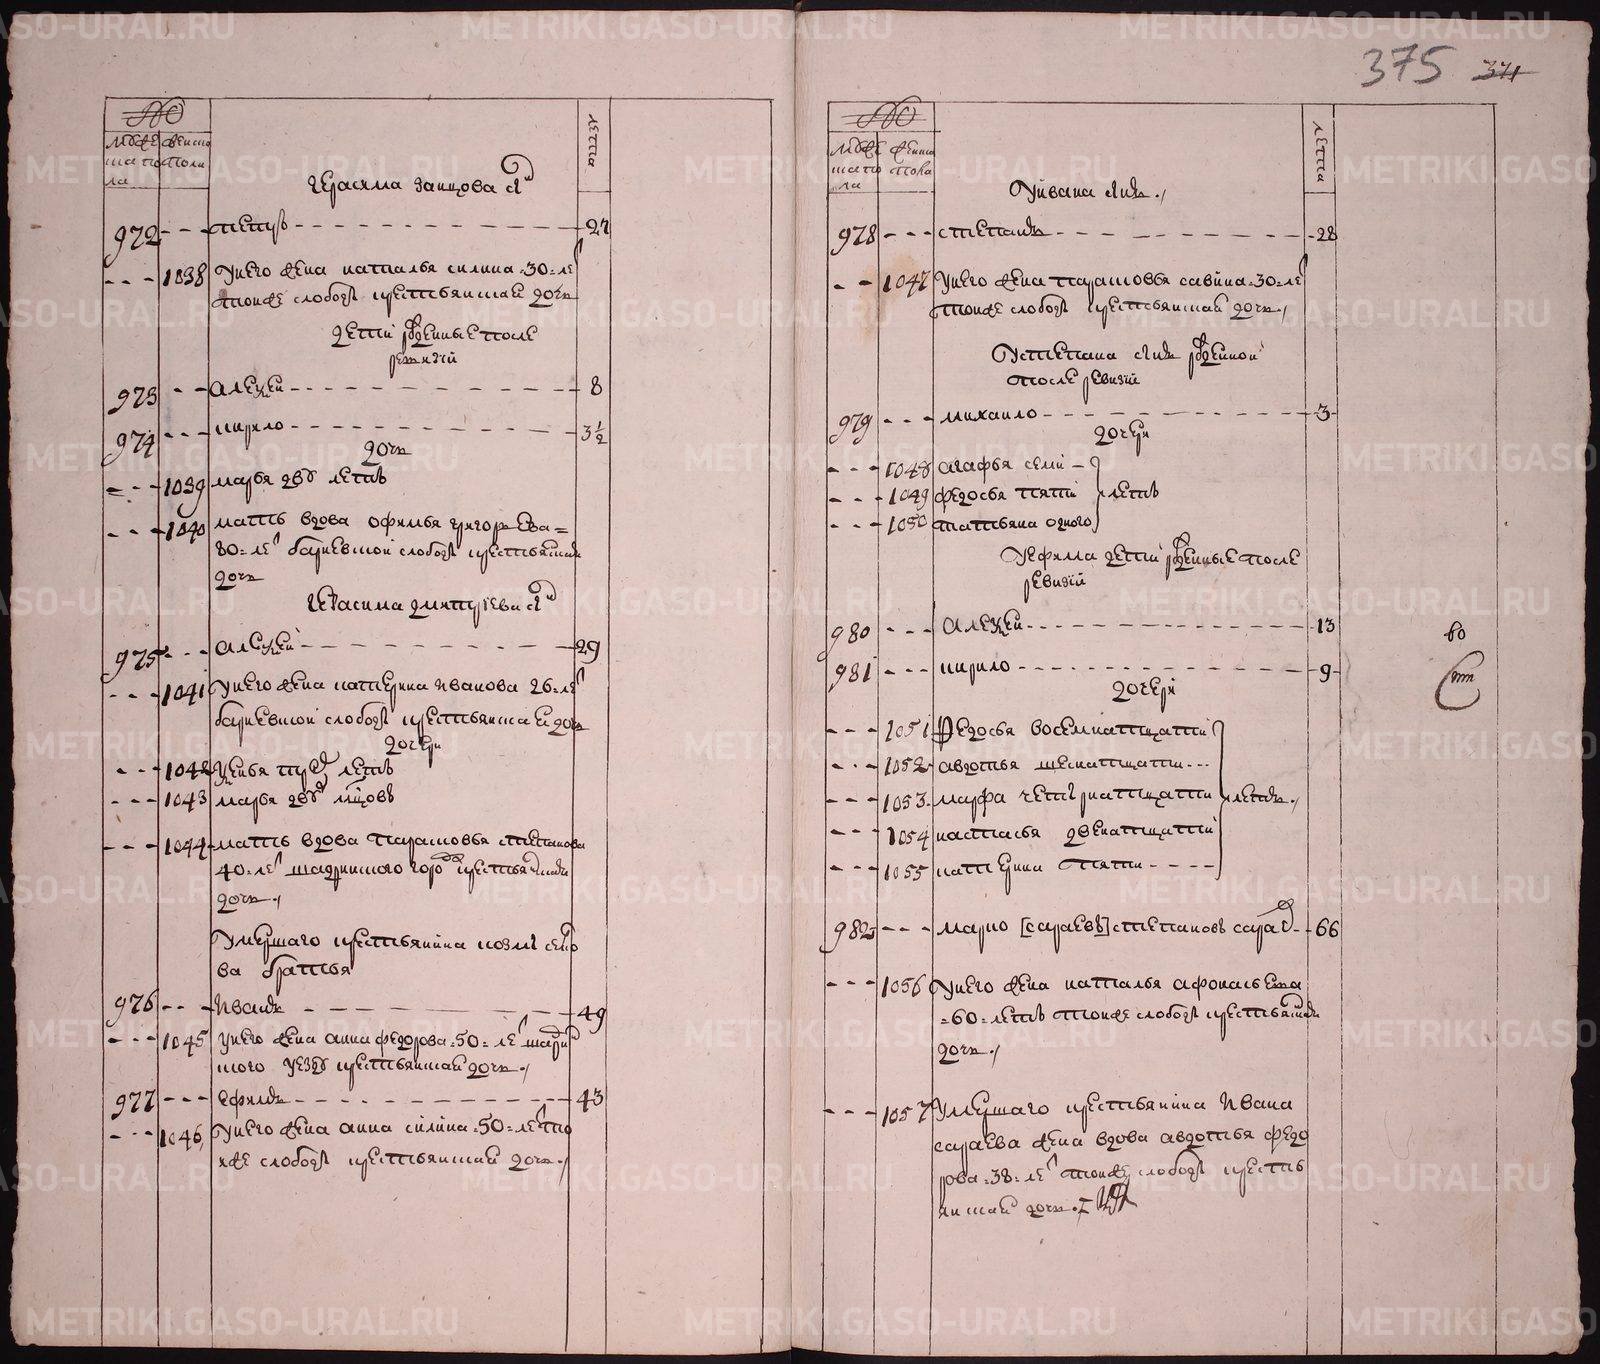 375 371
№
мужеска пола
женска пола
лета
Герасима Заицова снъ
972 - - - Петръ - - - 27
- - - 1038 У него жена Наталья Силина 30 ле
тоиже слободы крестьянская дочь
дети рожденные после
ревизїи
973 - - - Алексеи - - - 8
974 - - - Кирило - - - 3 1/2
дочь
- - - 1039 Марья дву летъ
- - - 1040 мать вдова Офимья Григорьева
80 ле слободы крестьянская
дочь
Герасима снъ
975 - - - Алексеи - - - 29
- - - 1041 У него жена Катерина Иванова 26 ле
слободы крестьянская дочь
дочери
- - - 1042 летъ
- - - 1043 Марья дву мцовъ
- - - 1044 мать вдова Парасковья Степанова
40 ле шадринского крестьянская
дочь
Умершаго крестьянина
ва братья
976 - - - Иванъ - - - 49
- - - 1045 У него жена Анна Федорова 50 ле
ского уезду крестьянская дочь
977 - - - Ефимъ - - - 43
- - - 1046 У него жена Анна Силина 50 ле то
иже слободы крестьянская дочь
№
мужеска пола
женска пола
лета
У Ивана снъ
978 - - - Степанъ - - - 28
- - - 1047 У него жена Парасковья Савина 30 ле
тоиже слободы крестьянская дочь
У Степана снъ рожденнои
после ревизїи
979 - - - Михаило - - - 3
дочери
- - - 1048 Агафья семи
- - - 1049 Федосья пяти летъ
- - - 1050 Татьяна одного
У Ефима дети рожденные после
ревизїи
980 - - - Алексеи - - - 13
981 - - - Кирило - - - 9
дочери
- - - 1051 Федосья восемнатцати
- - - 1052 Авдотья шеснатцати
- - - 1053 Марфа четырнатцати летъ
- - - 1054 Настасья двенатцати
- - - 1055 Катерина пяти
982 - - - Марко [Сараевъ] Степановъ - - 66
- - - 1056 У него жена Наталья Афонасьева
60 летъ тоиже слободы крестьянская
дочь
- - - 1057 Умершаго крестьянина Ивана
Сараева жена вдова Авдотья Федо
рова 38 ле тоиже слободы кресть
янская дочь